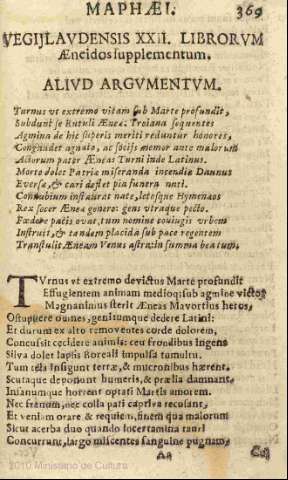 MAPHÆI. 369
VEGIJLAVDENSIS XXII. LIBRORVM
Æneidos supplementum.
ALIVD ARGVMENTVM.
Turnus vt extremo vitam sub Marte profundit,
Subdunt se Rutuli Æneæ Troiana sequentes
Agmina de hic superis meriti redduntur honores,
gnato, ac socijs memor ante malorum
Actorum pater Æneas Turni inde Latinus.
Morte dolet Patria miseranda incendia Daunus
Euersæ, & cari deflet pia funera nati.
Connubium instaurat nate, letosque Hymenaos
Rex socer Æneæ genero: gens vtraque pesto.
Fœdere pacis ouat, tum nomine coniugis vrbem
Instruit, & tandem placida sub pace regentem
Transtulit Æneam Venus astra in summa beatum.
TVrnus vt extremo deuictus Marte profundit
Effugientem animam medioq; sub agmine victor
Magnanimus stetit Æneas Mauortius heros,
Obstupuere omnes, genitumque dedere Latini:
Et durum ex alto remouentes corde dolorem,
Concussit cecidere animis: ceu frondibus ingens
Silua dolet lapsis Boreali impulsa tumultu.
Tum tela insigunt terræ, & mucronibus hærent.
Scutaque deponunt humeris, & prælia damnant,
Insanumque horrent optati Martis amorem.
Nec frenum, nec colla pati captiua recusant,
Et veniam orare & requiem, finem qua malorum
Sicut acerba duo quando in certamina tauri
Concurrunt, largo miscentes sanguine pugnam,
Aa
2010 Ministerio de Cultura